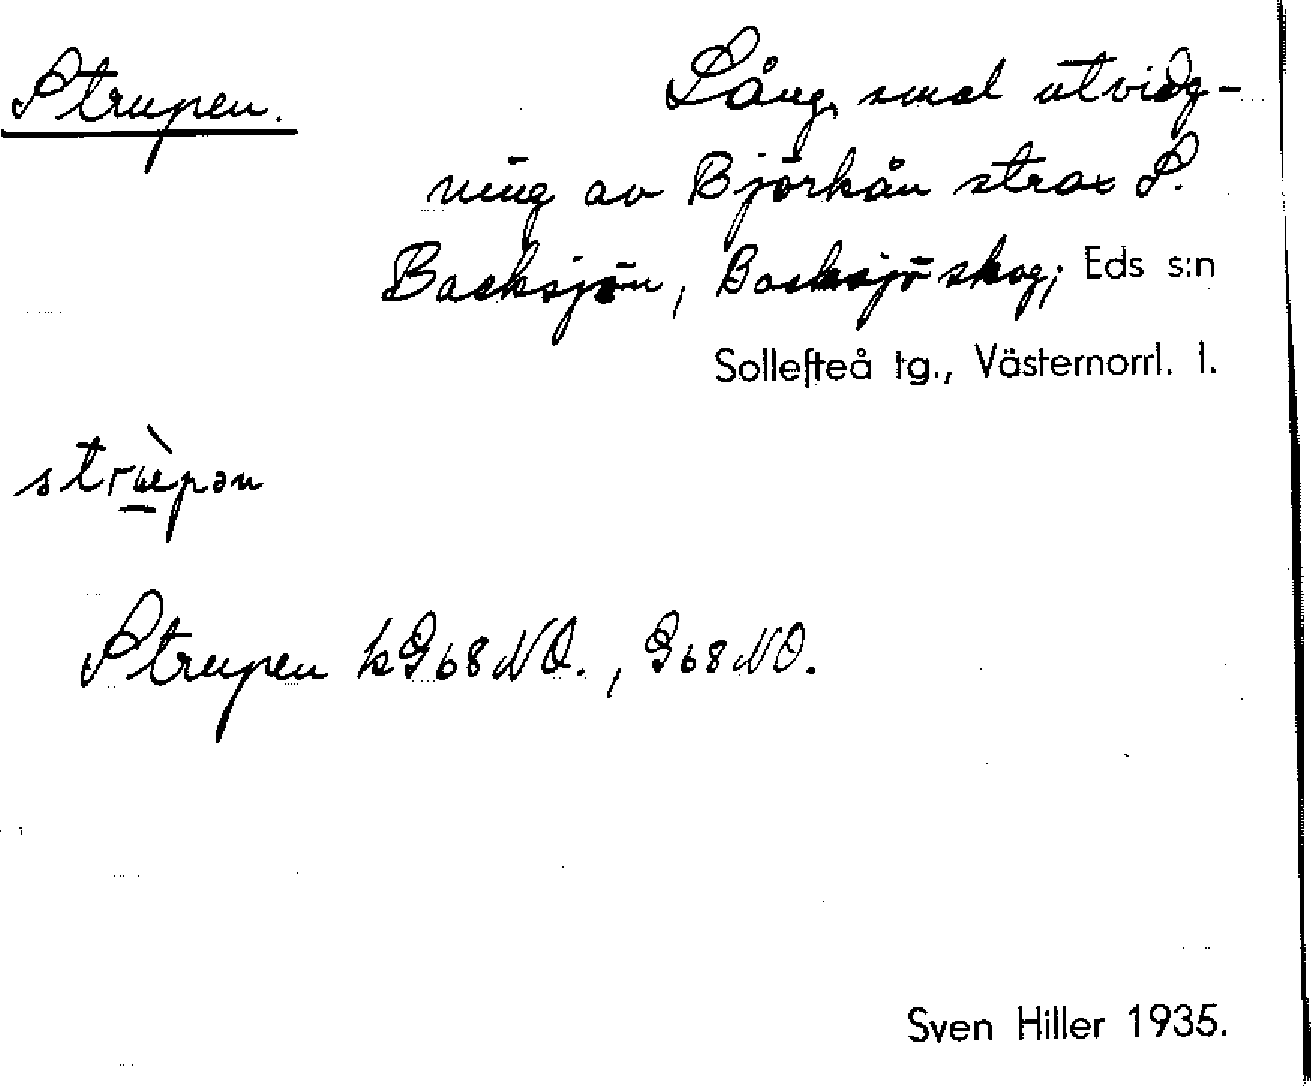 Strupen.
Lång, smal utvidg-
ning av Björkån strax S.
Backsjön, Backsjö skog; Eds s:n
Sollefteå tg., Västernorrl. l.
Strupen kG68NO., G68NO.
Sven Hiller 1935.